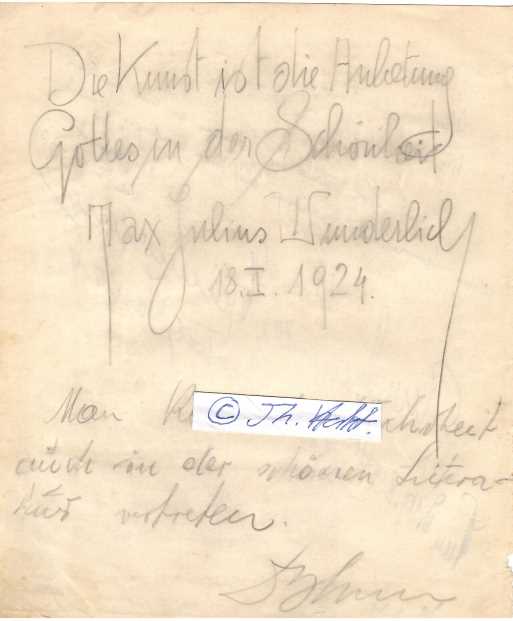 Die Kunst ist die Anbetung
Gottes in der Schönheit
Max Julius Wunderlich
18.I.1924.
Man
© Th.
auch in der schönen Litera-
tur vertreten.